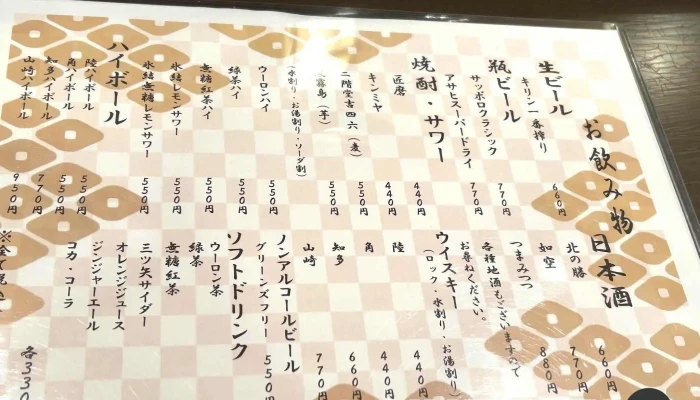 お飲み物
生ビール
キリン一番搾り 660円
瓶ビール
サッポロクラシック 770円
アサヒスーパードライ 770円
焼酎・サワー
匠磨 440円
キンミヤ 440円
二階堂吉四六(麦) 550円
霧島(芋) 550円
(水割り・お湯割り・ソーダ割)
ウーロンハイ 550円
緑茶ハイ 550円
無糖紅茶ハイ 550円
氷結レモンサワー 550円
氷結無糖レモンサワー 550円
ハイボール
陸ハイボール 550円
角ハイボール 550円
知多ハイボール 770円
山崎ハイボール 950円
日本酒
北の勝 660円
如空 770円
つまみつつ 880円
各種地酒もございますので
お尋ねください。
ウイスキー
(ロック・水割り・お湯割り)
陸 440円
角 440円
知多 660円
山崎 770円
ノンアルコールビール
グリーンズフリー 550円
ソフトドリンク
ウーロン茶
緑茶
無糖紅茶
三ツ矢サイダー
オレンジジュース
ジンジャーエール
コカ・コーラ
各330
※全て税込